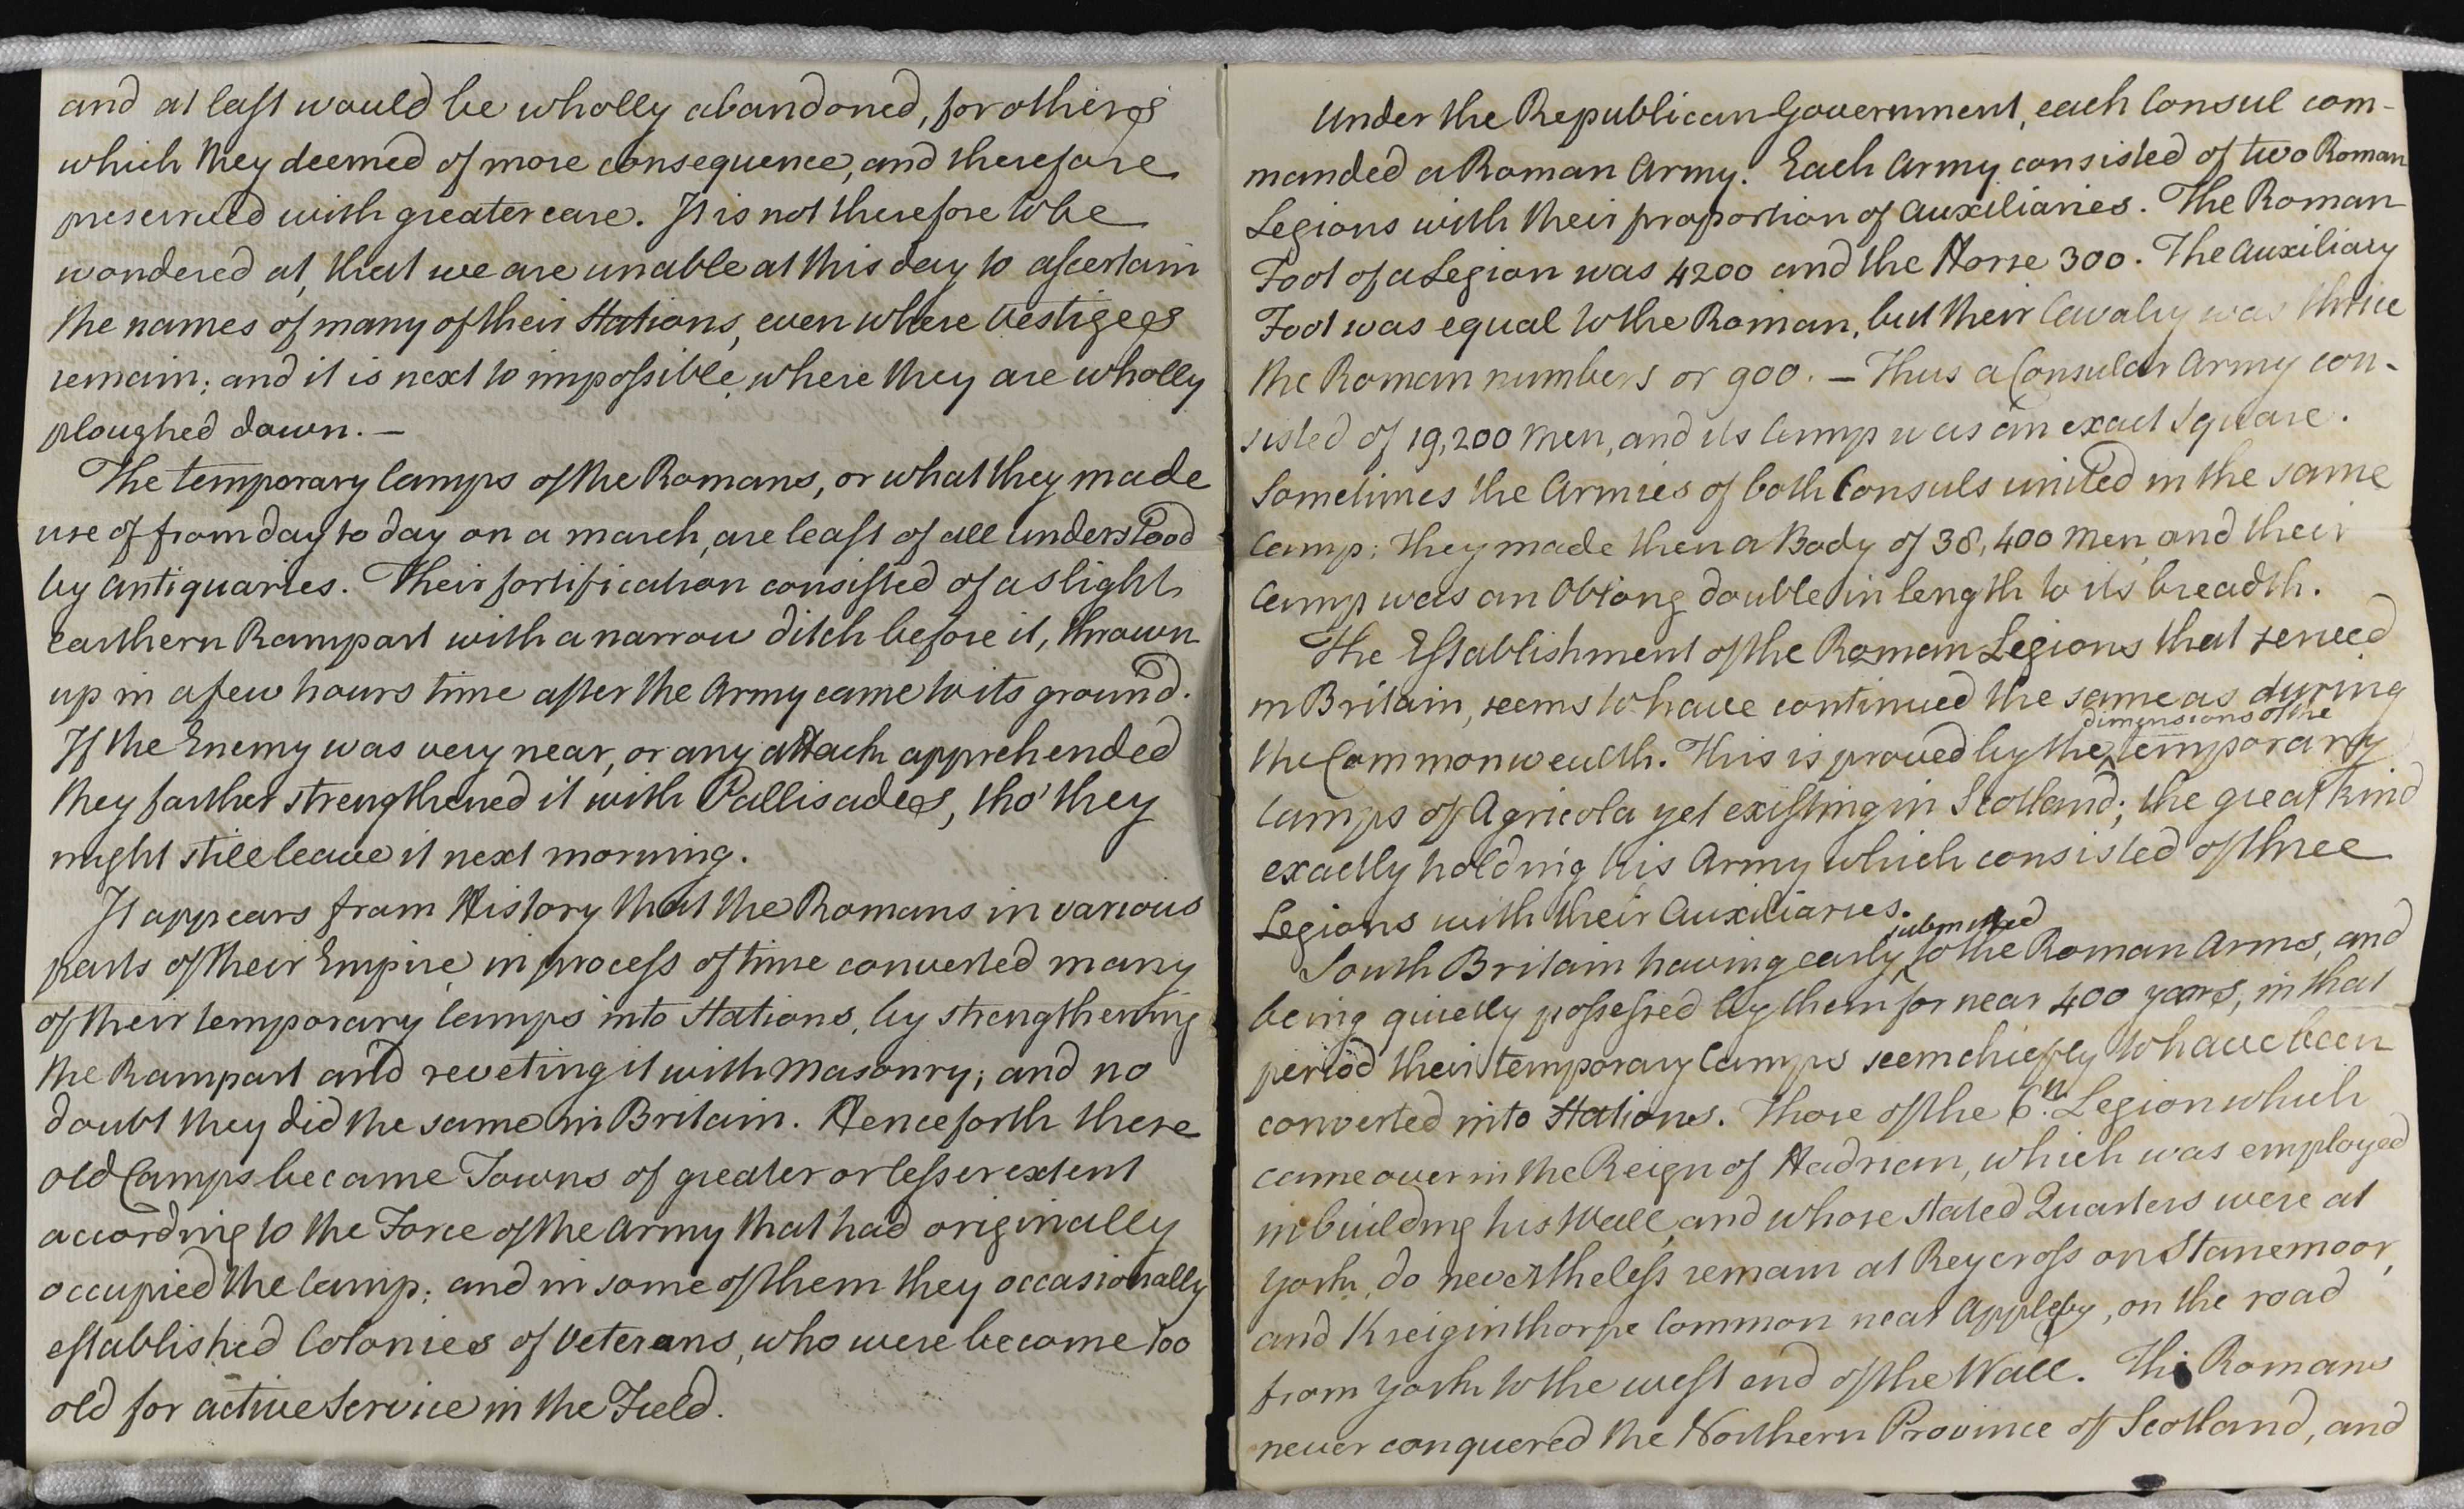 and at last would be wholly abandoned, for others
which they deemed of more consequence, and therefore
preserved with greater care. It is not therefore to be
wondered at, that we are unable at this day to ascertain
the names of many of their Stations, even where vestiges
remain; and it is next to impossible, where they are wholly
ploughed down. —
The temporary Camps of the Romans, or what they made
use of from day to day on a march, are least of all understood
by Antiquaries. Their fortification consisted of a slight
earthern Rampart with a narrow ditch before it, thrown
up in a few hours time after the Army came to its ground.
If the Enemy was very near, or any attack apprehended
they farther strengthened it with Pallisades, tho' they
might still leave it next morning.
It appears from History that the Romans in various
parts of their Empire, in process of time converted many
of their temporary Camps into Stations, by strengthening
the Rampart and reveting it with Masonry; and no
doubt they did the same in Britain. Henceforth these
old Camps became Towns of greater or lesser extent
according to the Force of the Army that had originally
occupied the Camp; and in some of them they occasionally
established Colonies of Veterans, who were become too
old for active Service in the Field.
Under the Republican Government, each Consul com-
manded a Roman Army. Each Army consisted of two Roman
Legions with their proportion of Auxiliaries. The Roman
Foot of a Legion was 4200 and the Horse 300. The Auxiliary
Foot was equal to the Roman, but their Cavalry was thrice
the Roman numbers or 900. — Thus a Consular Army con-
sisted of 19,200 Men, and its Camp was an exact Square.
Sometimes the Armies of both Consuls united in the same
Camp; they made then a Body of 38,400 Men, and their
Camp was an Oblong double in length to its breadth.
The Establishment of the Roman Legions that served
in Britain, seems to have continued the same as during
the Commonwealth. This is proved by the dimensions of the temporary
Camps of Agricola yet existing in Scotland; the great kind
exactly holding his Army which consisted of three
Legions with their Auxiliaries.
South Britain having early submitted to the Roman Arms, and
being quietly possessed by them for near 400 years, in that
period their temporary Camps seem chiefly to have been
converted into Stations. Those of the 6.th Legion which
came over in the Reign of Hadrian, which was employed
in building his Wall, and whose stated Quarters were at
York, do nevertheless remain at Reycross on Stanemoor,
and Kreiginthorpe Common near Appleby, on the road
from York to the west end of the Wall. The Romans
never conquered the Northern Province of Scotland, and